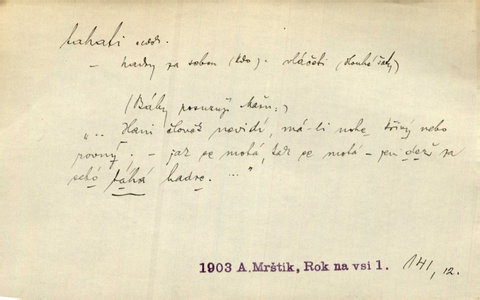 tahati
– hadry za sebou (kdo). vláčeti (dlouhé šaty)
(Báby posuzují Mařu:)
„.. Hani človek nevidí, má-li nohe křivý nebo
rovný. – jak se motá, tak se motá – jen dež za
sebó táhá hadre. ..."
1903 A. Mrštík, Rok na vsi 1. 141, 12.